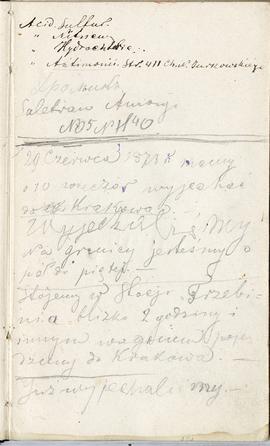 Acid. Sulful.
" Nitricum
" Hydrochlor.
" Antimonii. Str. 411 Chem. Turkowskiego
Saletran Amonji
NO5 NH4O
29 Czerwca 1873 R mamy
o 10 wieczór wyjechać
do Krakowa
Wyjechaliśmy
Na granicy jesteśmy o
pół do piątej. —
Stojemy w Stacji Trzebi-
nia blizko 2 godziny i
innym wagonem poje-
dziemy do Krakowa. —
Już wyjechaliśmy. —